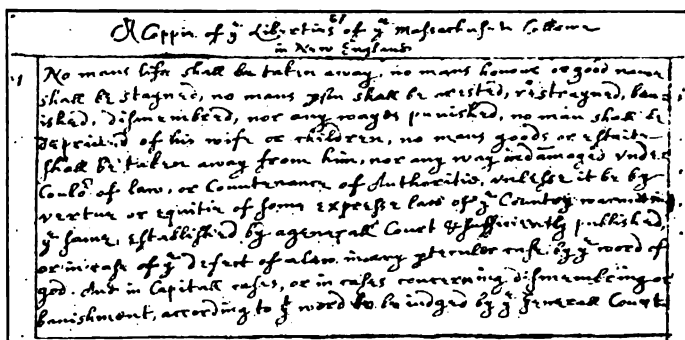 A Coppie of yᵉ Liberties of yᵉ Massachusets Collonie
in New England
1 No mans life shall be taken away, no mans honour or good name
shall be stayned, no mans pson shall be arested, restrayned, ban-
ished, dismembred, nor any wayes punished, no man shall be
deprived of his wife or children, no mans goods or estaite
shall be taken away from him, nor any way indammaged vnder
Coulor of law, or Countenance of Authoritie, vnlesse it be by
vertue or equitie of some expresse law of yᵉ Country warranting
yᵉ same, established by a generall Court & sufficiently published,
or in case of yᵉ defect of a law in any pteculer case by yᵉ word of
god. And in Capitall cases, or in cases concerning dismembring or
banishment, according to yᵗ word to be iudged by yᵉ Generall Court